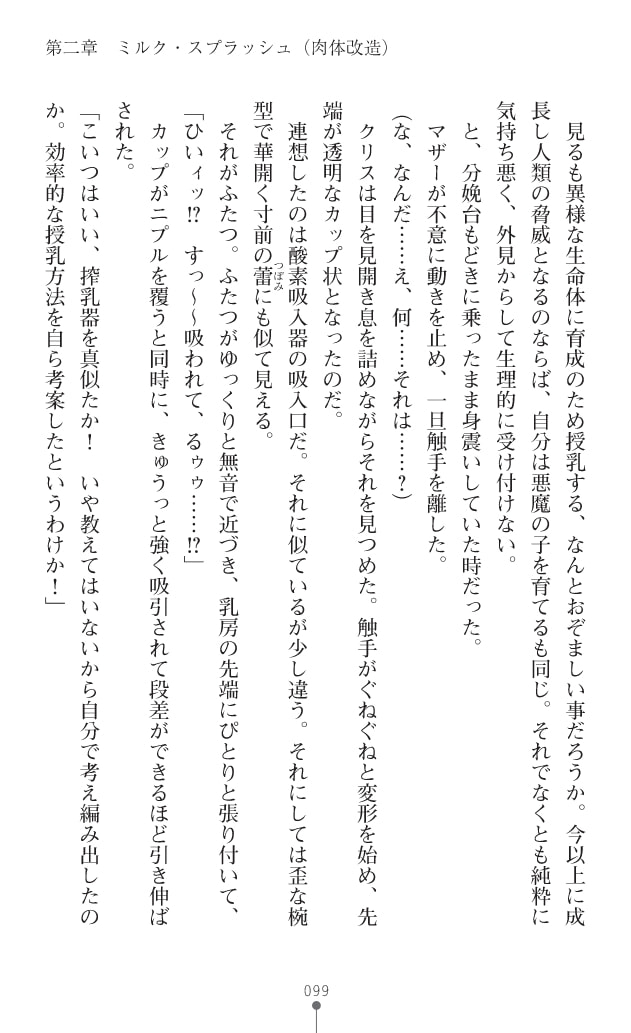 第二章　ミルク・スプラッシュ（肉体改造）
　見るも異様な生命体に育成のため授乳する、なんとおぞましい事だろうか。今以上に成
長し人類の脅威となるのならば、自分は悪魔の子を育てるも同じ。それでなくとも純粋に
気持ち悪く、外見からして生理的に受け付けない。
　と、分娩台もどきに乗ったまま身震いしていた時だった。
　マザーが不意に動きを止め、一旦触手を離した。
（な、なんだ……え、何……それは……？）
　クリスは目を見開き息を詰めながらそれを見つめた。触手がぐねぐねと変形を始め、先
端が透明なカップ状となったのだ。
　連想したのは酸素吸入器の吸入口だ。それに似ているが少し違う。それにしては歪な椀
型で華開く寸前の蕾にも似て見える。
つぼみ
　それがふたつ。ふたつがゆっくりと無音で近づき、乳房の先端にぴとりと張り付いて、
「ひいィッ!?　すっ～～吸われて、るゥゥ……!?」
　カップがニプルを覆うと同時に、きゅうっと強く吸引されて段差ができるほど引き伸ば
された。
「こいつはいい、搾乳器を真似たか！　いや教えてはいないから自分で考え編み出したの
か。効率的な授乳方法を自ら考案したというわけか！」
099